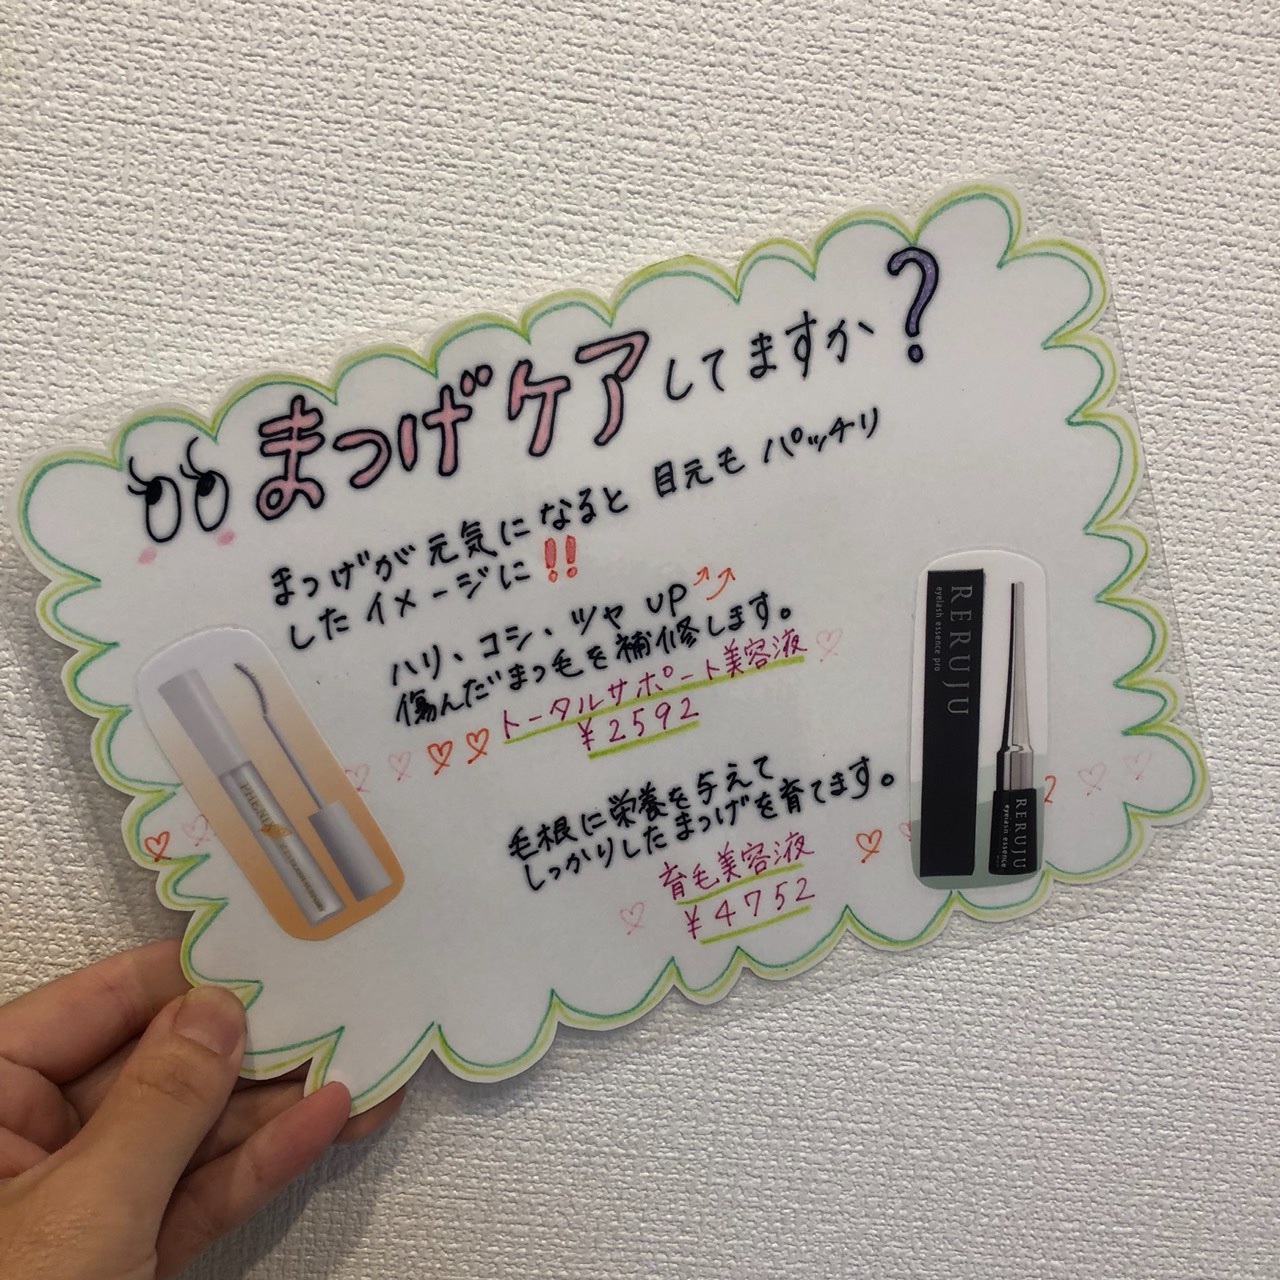 まつげケアしてますか?
まつげが元気になると 目元も パッチリ
したイメージに!!
ハリ、コシ、ツヤ UP
傷んだまつ毛を補修します。
トータルサポート美容液
¥2592
毛根に栄養を与えて
しっかりしたまつげを育てます。
育毛美容液
¥4752
RERUJU
eyelash essence pro
RERUJU
eyelash essence